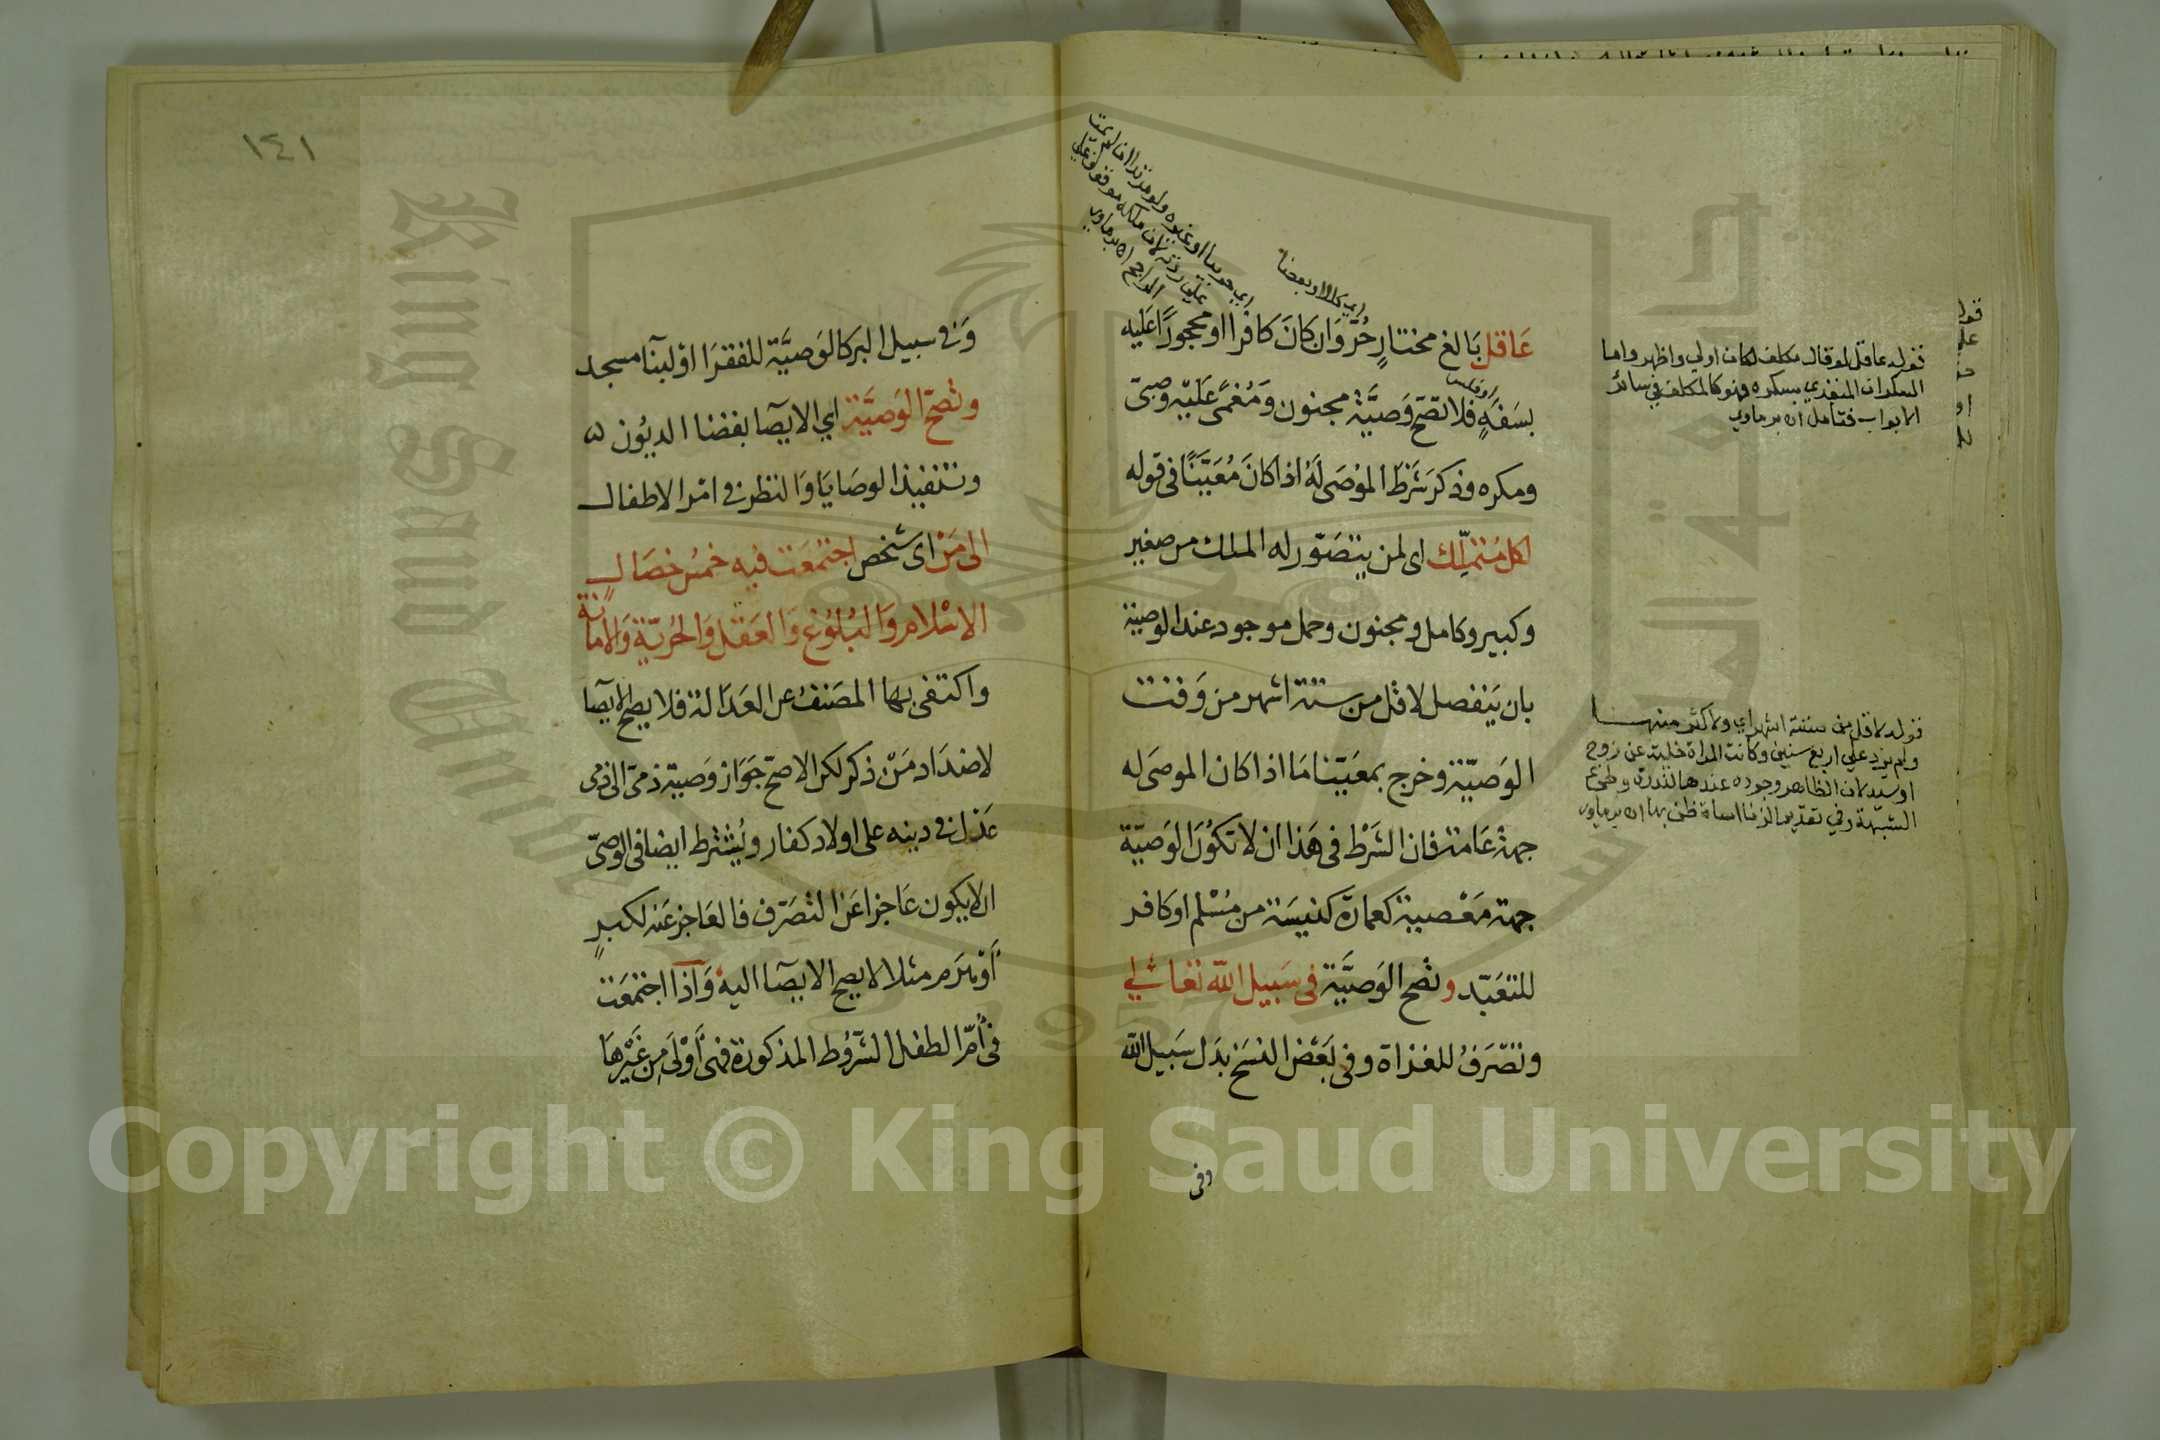 اي كلا او بعضا
اي حربيا او غيره ولو مرتدا اذا لم يمت
على ردته لان ملكه موقوف على
الراجح اه برماوي
عَاقل بَالغ مختارٍ حُرّ وَان كَانَ كافرا او محجورًا عَليه
بسَفهٍ فلا تصحّ وَصيَّة مجنون وَمُغمًى عَليْه وصبىّ
ومكره وذكر شَرْطَ المُوْصَى لَهُ اذا كانَ مُعَيَّنًا فى قوله
لكل مُتملِّك اى لمن يتصَوّر له الملك من صغير
وكبير وكامل ومجنون وحمل موجود عند الوصية
بان يَنفصل لاقل من ستة اشهر من وَقت
الوَصيّة وخرج بمعَيّنا مَا اذا كان الموصَى له
جهة عَامة فان الشَرْط فى هَذا ان لا تكوُن الوَصيّة
جهة مَعْصية كعمارة كنيسَة من مُسْلم او كافر
للتعَبّد وتصح الوَصيَّة فى سَبيل الله تعالى
وتصّرَفُ للغزاة وفى بَعْض النسَخ بدَل سَبيل الله
وفى
قوله عاقل لو قال مكلف لكان اولي واظهر واما
السكران المتعدي بسكره فهو كالمكلف في سائر
الابواب فتامل اه برماوي
قوله لاقل من ستة اشهر اي ولاكثر منها
ولم يزد علي اربع سنين وكانت المراة خلية عن زوج
او سيد لان الظاهر وجوده عندها لندرة وطئ
الشبهة وفي تقدير الزنا اساة ظن بها اه برماوي
١٤١
وَفى سبيل البر كالوَصيَّة للفقرَا او لبنآ مسجد
وتصَحّ الوَصيَّة اي الايصَا بقضا الديوُن
وتنفيذ الوصَايَا وَالنظر فى امْر الاطفال
الى مَنْ اى شخص اجتمعَت فيه خمسُ خصَال
الاسْلام وَالبُلوُغ وَالعَقل وَالحُريّة وَالامَانة
واكتفى بها المصَنفُ عن العَدَالة فلا يصح الايصا
لاضدَاد مَنْ ذكر لكن الاصحّ جَوَاز وَصية ذمىّ الى ذمى
عَدل فى دينه على اولاد كفار ويُشْترط ايضا فى الوصىّ
ان لا يكون عَاجزا عَن التصَرّف فالعَاجز عَنه لكبرٍ
أوْ هَرَم مثلا لا يصح الايصَا اليه وَاذا اجتمعَت
فى أمّ الطفل الشرُوُط المذكورة فهى أوْلى مِن غَيْرهَا